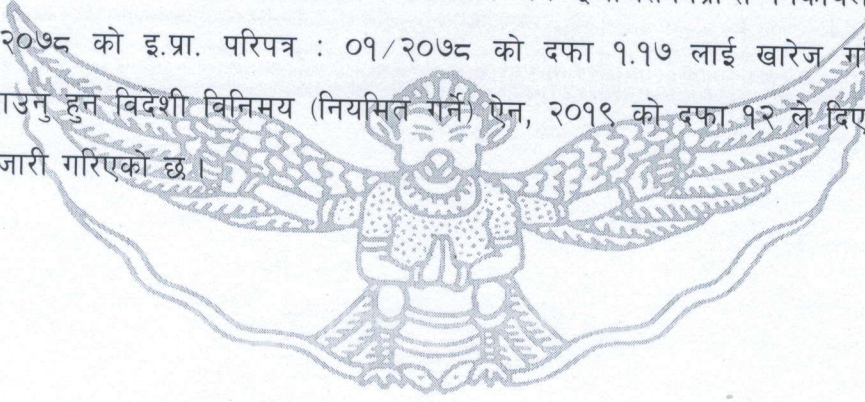 २०७८ को इ.प्रा. परिपत्र : ०१/२०७८ को दफा १.१७ लाई खारेज
हुन विदेशी विनिमय (नियमित गर्ने) ऐन, २०१९ को दफा १२ ले
जारी गरिएको छ ।